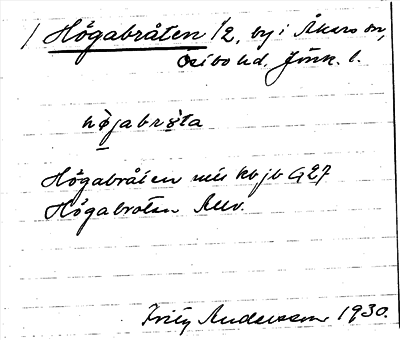 / Högabråten 1/2, by i Åkers sn,
Östbo hd. Jönk. l.
højabrøta
Högabråten kbjb G27
Högabroten Allv.
Fritz Andersson 1930.